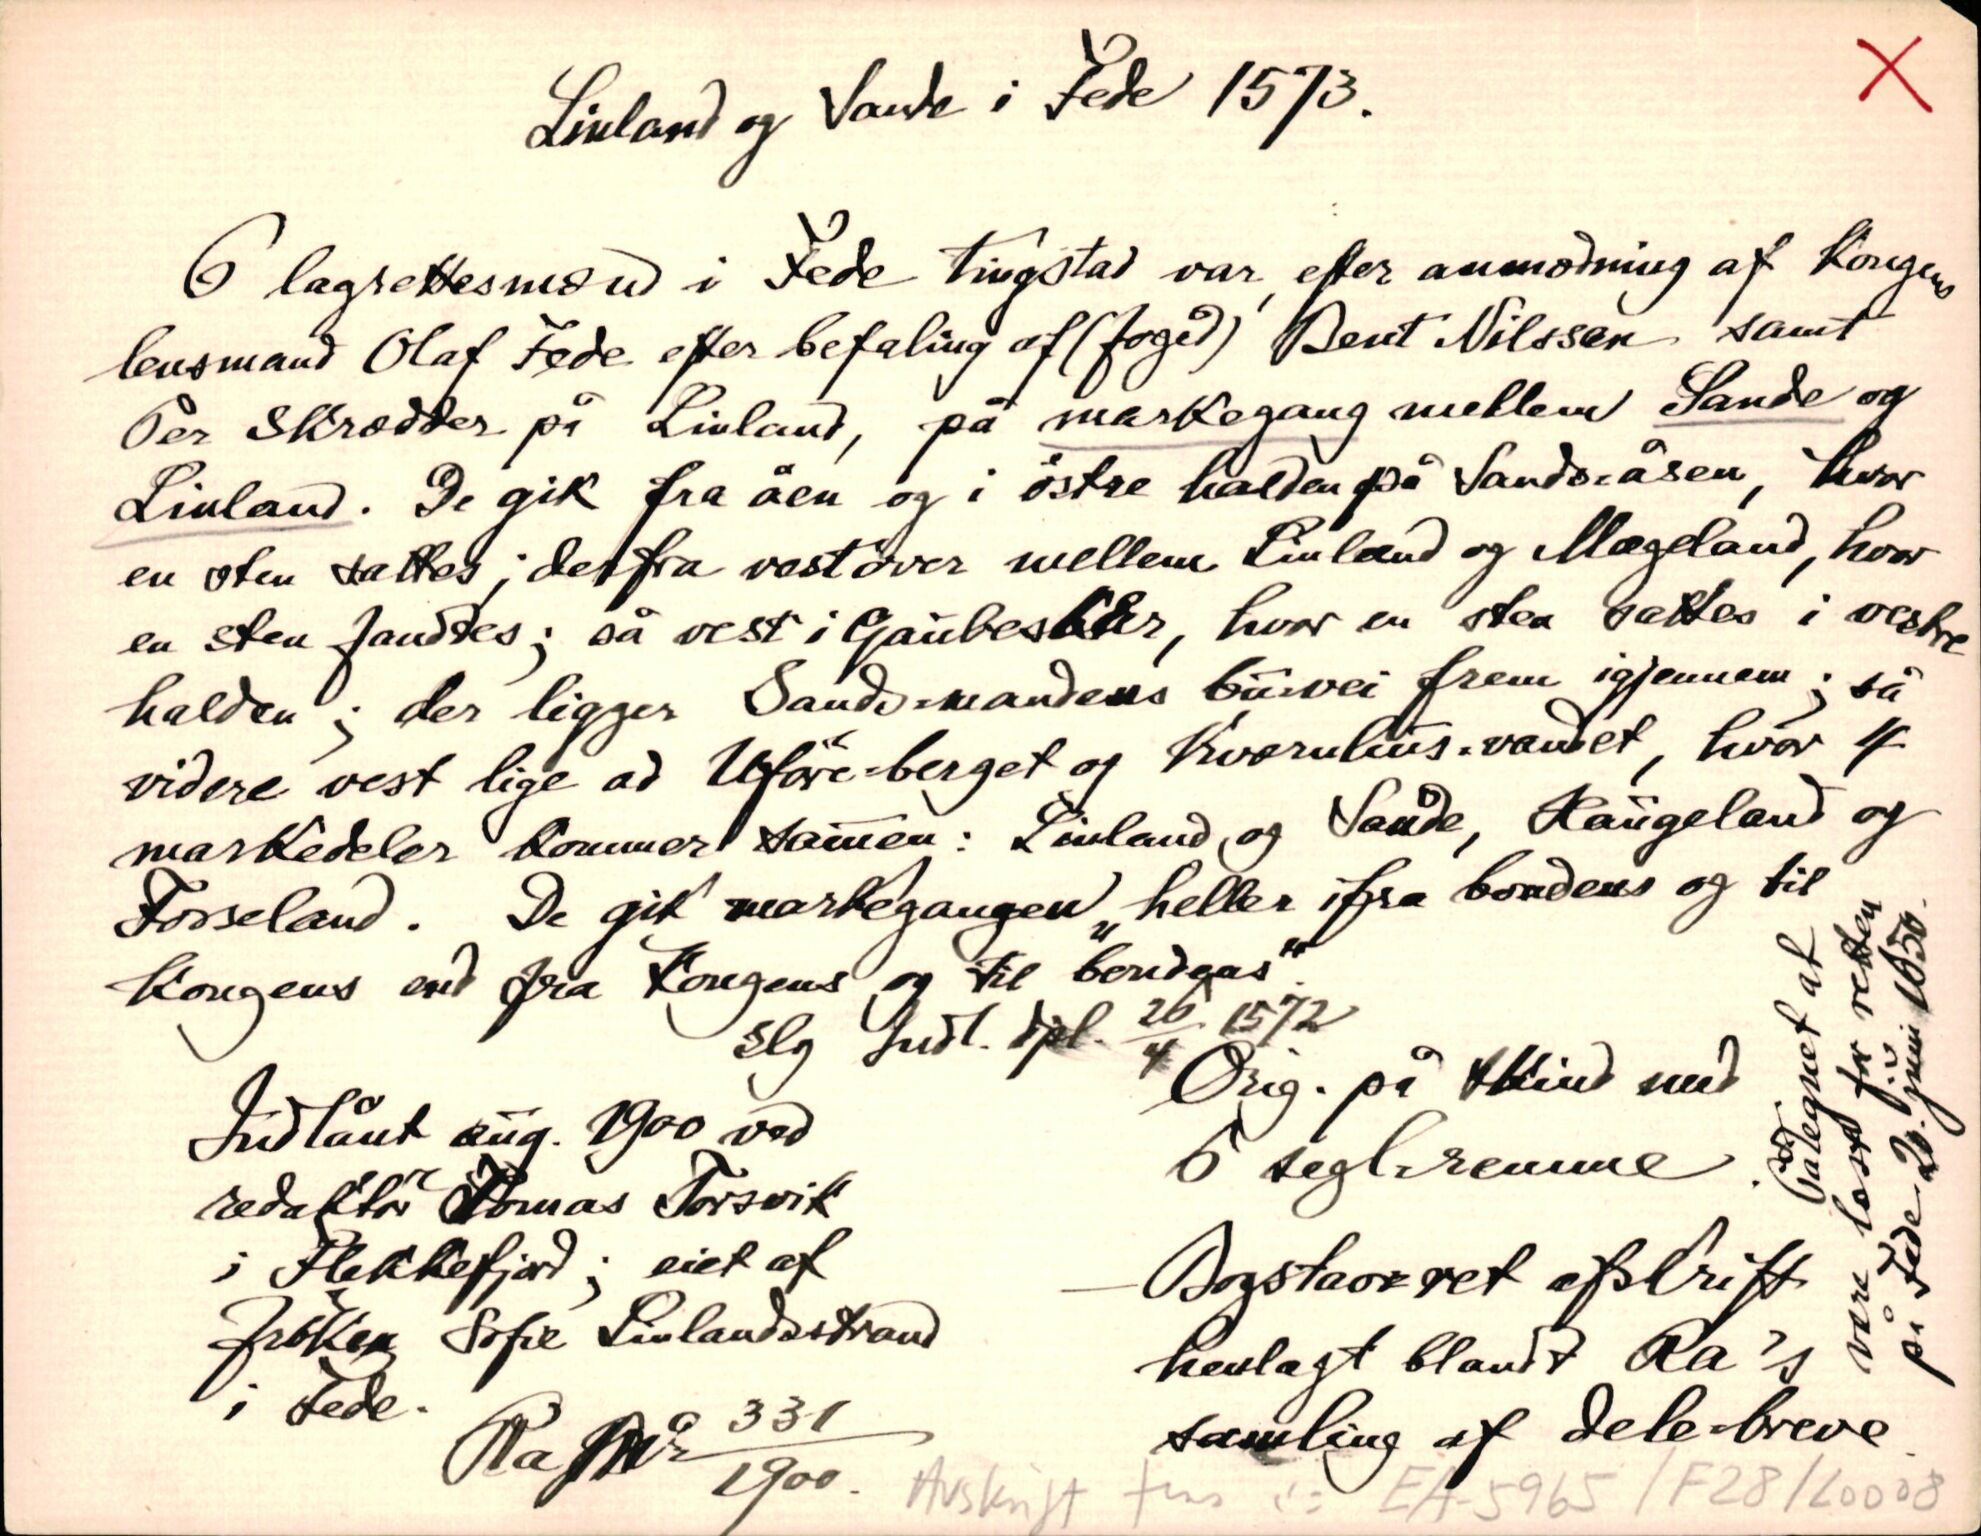 Linland og Sande i Fede 1573.
6 lagrettesmænd i Fede tingstad var, efter anmodning af Kongens
lensmand Olaf Fede efter befaling af (foged) Bent Nilssen samt
Per Skrædder på Linland, på markegang mellem Sande og
Linland. De gik fra åen og i østre halden på Sands-åsen, hvor
en sten sattes; derfra vestover mellem Linland og Mægeland, hvor
en sten fandtes; så vest i, hvor en sten sattes i vestre
halden; der ligger Sands-mandens buvei frem igjennem; så
videre vest lige ad Uføre-berget og Kværnhus-vandet, hvor 4
markedeler kommer samen: Linland og Sande, Haugeland og
Forseland. De gik markegangen "heller ifra bondens og til
Kongens end fra Kongens og til bondens".
Slg dipl. 26/4 1572
Indlånt aug. 1900 ved
redaktør Tomas Torsvik
i Flekkefjord; eiet af
frøken Sofie Linlandsstrand
i Fede.
Ra 331/1900.
Orig. på skind med
6 segl-remme.
— Bogstavret afskrift
henlagt blandt Ra's
samling af dele-breve.
Påtegnet at
være læst for retten
på Fede 20. juni 1650.
Avskrift fins i: EA-5965/F28/L0008
X